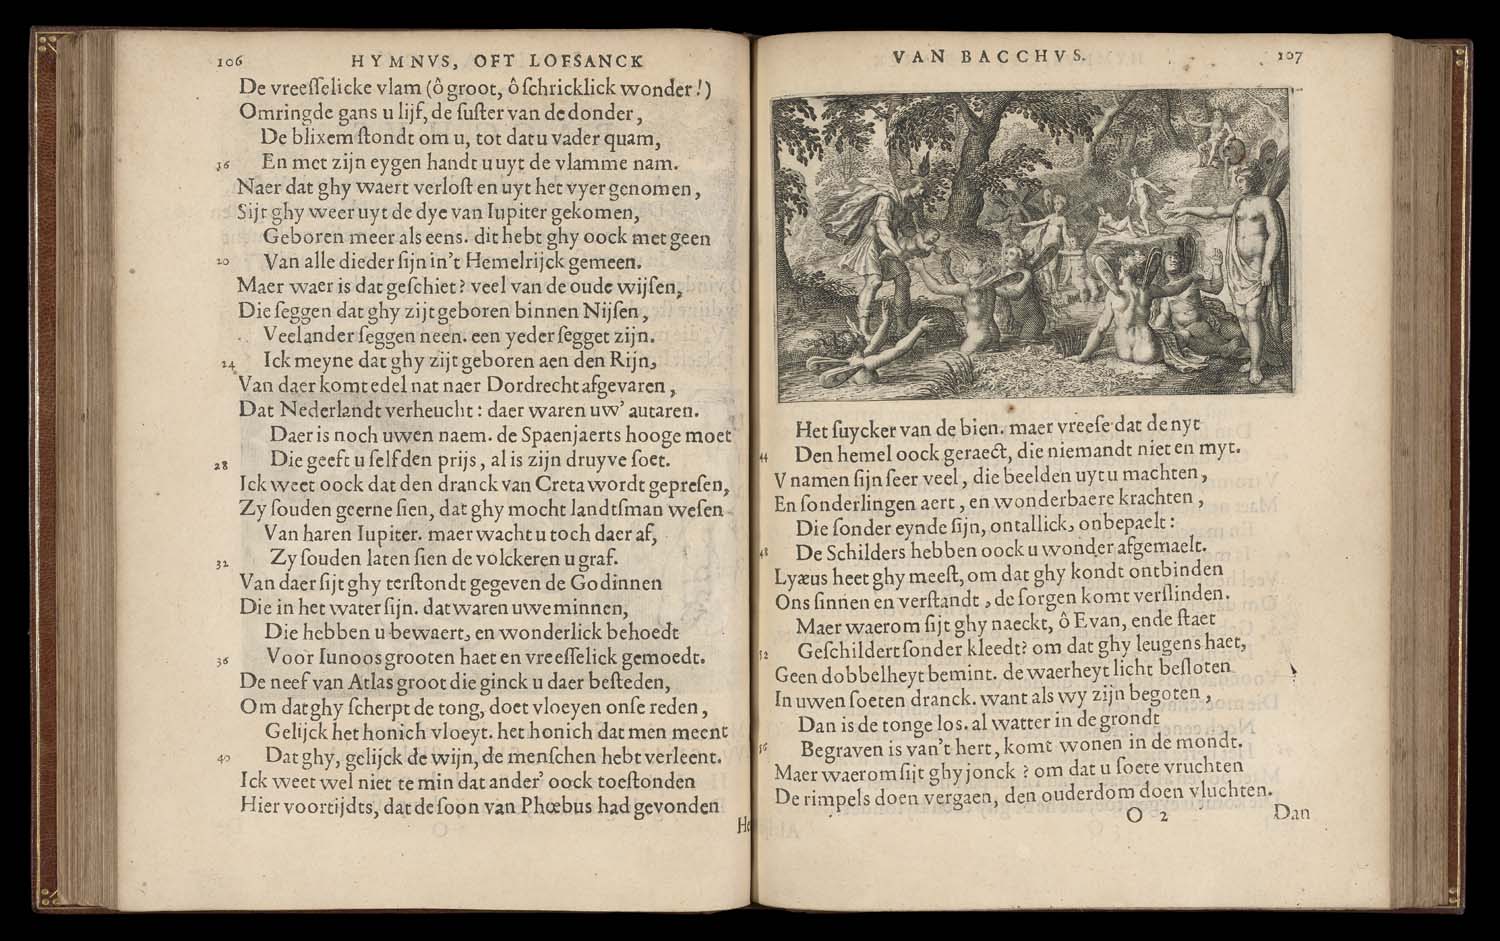 106 HYMNVS, OFT LOFSANCK
De vreeſſelicke vlam (ô groot, ô ſchricklick wonder!)
Omringde gans u lijf, de ſuſter van de donder,
De blixem ſtondt om u, tot dat u vader quam,
16 En met zijn eygen handt u uyt de vlamme nam.
Naer dat ghy waert verloſt en uyt het vyer genomen,
Sijt ghy weer uyt de dye van Iupiter gekomen,
Geboren meer als eens. dit hebt ghy oock met geen
20 Van alle die der ſijn in't Hemelrijck gemeen.
Maer waer is dat geſchiet? veel van de oude wijſen,
Die ſeggen dat ghy zijt geboren binnen Nijſen,
Veel ander ſeggen neen. een yeder ſegget zijn.
24 Ick meyne dat ghy zijt geboren aen den Rijn,
Van daer komt edel nat naer Dordrecht afgevaren,
Dat Nederlandt verheucht: daer waren uw' autaren.
Daer is noch uwen naem. de Spaenjaerts hooge moet
28 Die geeft u ſelf den prijs, al is zijn druyve ſoet.
Ick weet oock dat den dranck van Creta wordt gepreſen,
Zy ſouden geerne ſien, dat ghy mocht landtſman weſen
Van haren Iupiter. maer wacht u toch daer af,
32 Zy ſouden laten ſien de volckeren u graf.
Van daer ſijt ghy terſtondt gegeven de Godinnen
Die in het water ſijn. dat waren uwe minnen,
Die hebben u bewaert, en wonderlick behoedt
36 Voor Iunoos grooten haet en vreeſſelick gemoedt.
De neef van Atlas groot die ginck u daer beſteden,
Om dat ghy ſcherpt de tong, doet vloeyen onſe reden,
Gelijck het honich vloeyt. het honich dat men meent
40 Dat ghy, gelijck de wijn, de menſchen hebt verleent.
Ick weet wel niet te min dat ander' oock toeſtonden
Hier voortijdts, dat de ſoon van Phœbus had gevonden
He
VAN BACCHVS. 107
Het ſuycker van de bien. maer vreeſe dat de nyt
44 Den hemel oock geraect, die niemandt niet en myt.
V namen ſijn ſeer veel, die beelden uyt u machten,
En ſonderlingen aert, en wonderbaere krachten,
Die ſonder eynde ſijn, ontallick, onbepaelt:
48 De Schilders hebben oock u wonder afgemaelt.
Lyæus heet ghy meeſt, om dat ghy kondt ontbinden
Ons ſinnen en verſtandt, de ſorgen komt verſlinden.
Maer waerom ſijt ghy naeckt, ô Evan, ende ſtaet
52 Geſchildert ſonder kleedt? om dat ghy leugens haet,
Geen dobbelheyt bemint. de waerheyt licht beſloten
In uwen ſoeten dranck. want als wy zijn begoten,
Dan is de tonge los. al watter in de grondt
56 Begraven is van't hert, komt wonen in de mondt.
Maer waerom ſijt ghy jonck? om dat u ſoete vruchten
De rimpels doen vergaen, den ouderdom doen vluchten.
O 2 Dan